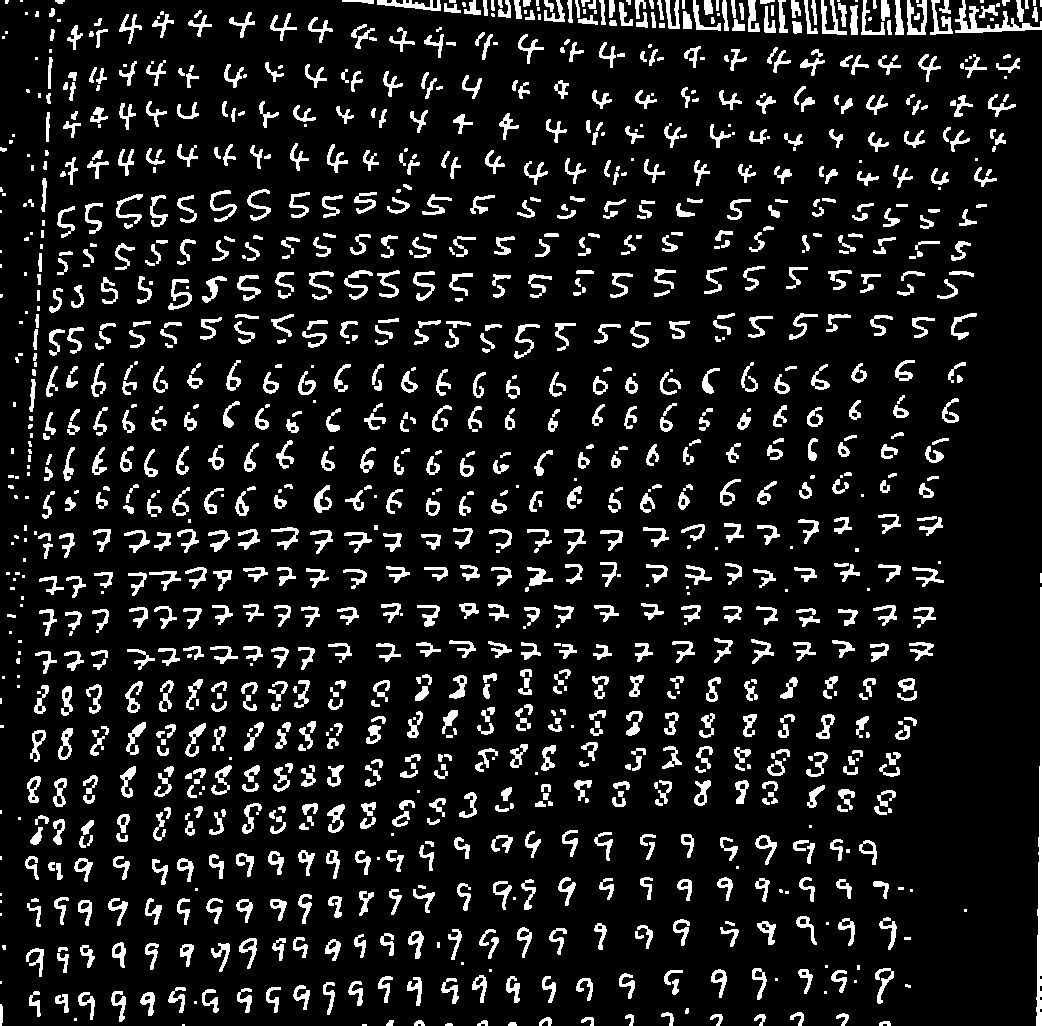 4 4 4 4 4 4 4 4 4 4 4 4 4 4 4 4 4 4 4 4 4 4 4 4 4
4 4 4 4 4 4 4 4 4 4 4 4 4 4 4 4 4 4 4 4 4 4 4 4 4
4 4 4 4 4 4 4 4 4 4 4 4 4 4 4 4 4 4 4 4 4 4 4 4 4
4 4 4 4 4 4 4 4 4 4 4 4 4 4 4 4 4 4 4 4 4 4 4 4 4
5 5 5 5 5 5 5 5 5 5 5 5 5 5 5 5 5 5 5 5 5 5 5 5 5
5 5 5 5 5 5 5 5 5 5 5 5 5 5 5 5 5 5 5 5 5 5 5 5 5
5 5 5 5 5 5 5 5 5 5 5 5 5 5 5 5 5 5 5 5 5 5 5 5 5
5 5 5 5 5 5 5 5 5 5 5 5 5 5 5 5 5 5 5 5 5 5 5 5 5 5
6 6 6 6 6 6 6 6 6 6 6 6 6 6 6 6 6 6 6 6 6 6 6 6 6 6
6 6 6 6 6 6 6 6 6 6 6 6 6 6 6 6 6 6 6 6 6 6 6 6 6 6
6 6 6 6 6 6 6 6 6 6 6 6 6 6 6 6 6 6 6 6 6 6 6 6 6 6
6 6 6 6 6 6 6 6 6 6 6 6 6 6 6 6 6 6 6 6 6 6 6 6 6 6
7 7 7 7 7 7 7 7 7 7 7 7 7 7 7 7 7 7 7 7 7 7 7 7 7 7
7 7 7 7 7 7 7 7 7 7 7 7 7 7 7 7 7 7 7 7 7 7 7 7 7 7
7 7 7 7 7 7 7 7 7 7 7 7 7 7 7 7 7 7 7 7 7 7 7 7 7 7
7 7 7 7 7 7 7 7 7 7 7 7 7 7 7 7 7 7 7 7 7 7 7 7 7 7
8 8 8 8 8 8 8 8 8 8 8 8 8 8 8 8 8 8 8 8 8 8 8 8 8 8
8 8 8 8 8 8 8 8 8 8 8 8 8 8 8 8 8 8 8 8 8 8 8 8 8 8
8 8 8 8 8 8 8 8 8 8 8 8 8 8 8 8 8 8 8 8 8 8 8 8 8 8
8 8 8 8 8 8 8 8 8 8 8 8 8 8 8 8 8 8 8 8 8 8 8 8 8 8
9 9 9 9 9 9 9 9 9 9 9 9 9 9 9 9 9 9 9 9 9 9 9 9 9 9
9 9 9 9 9 9 9 9 9 9 9 9 9 9 9 9 9 9 9 9 9 9 9 9 9 9
9 9 9 9 9 9 9 9 9 9 9 9 9 9 9 9 9 9 9 9 9 9 9 9 9 9
9 9 9 9 9 9 9 9 9 9 9 9 9 9 9 9 9 9 9 9 9 9 9 9 9 9